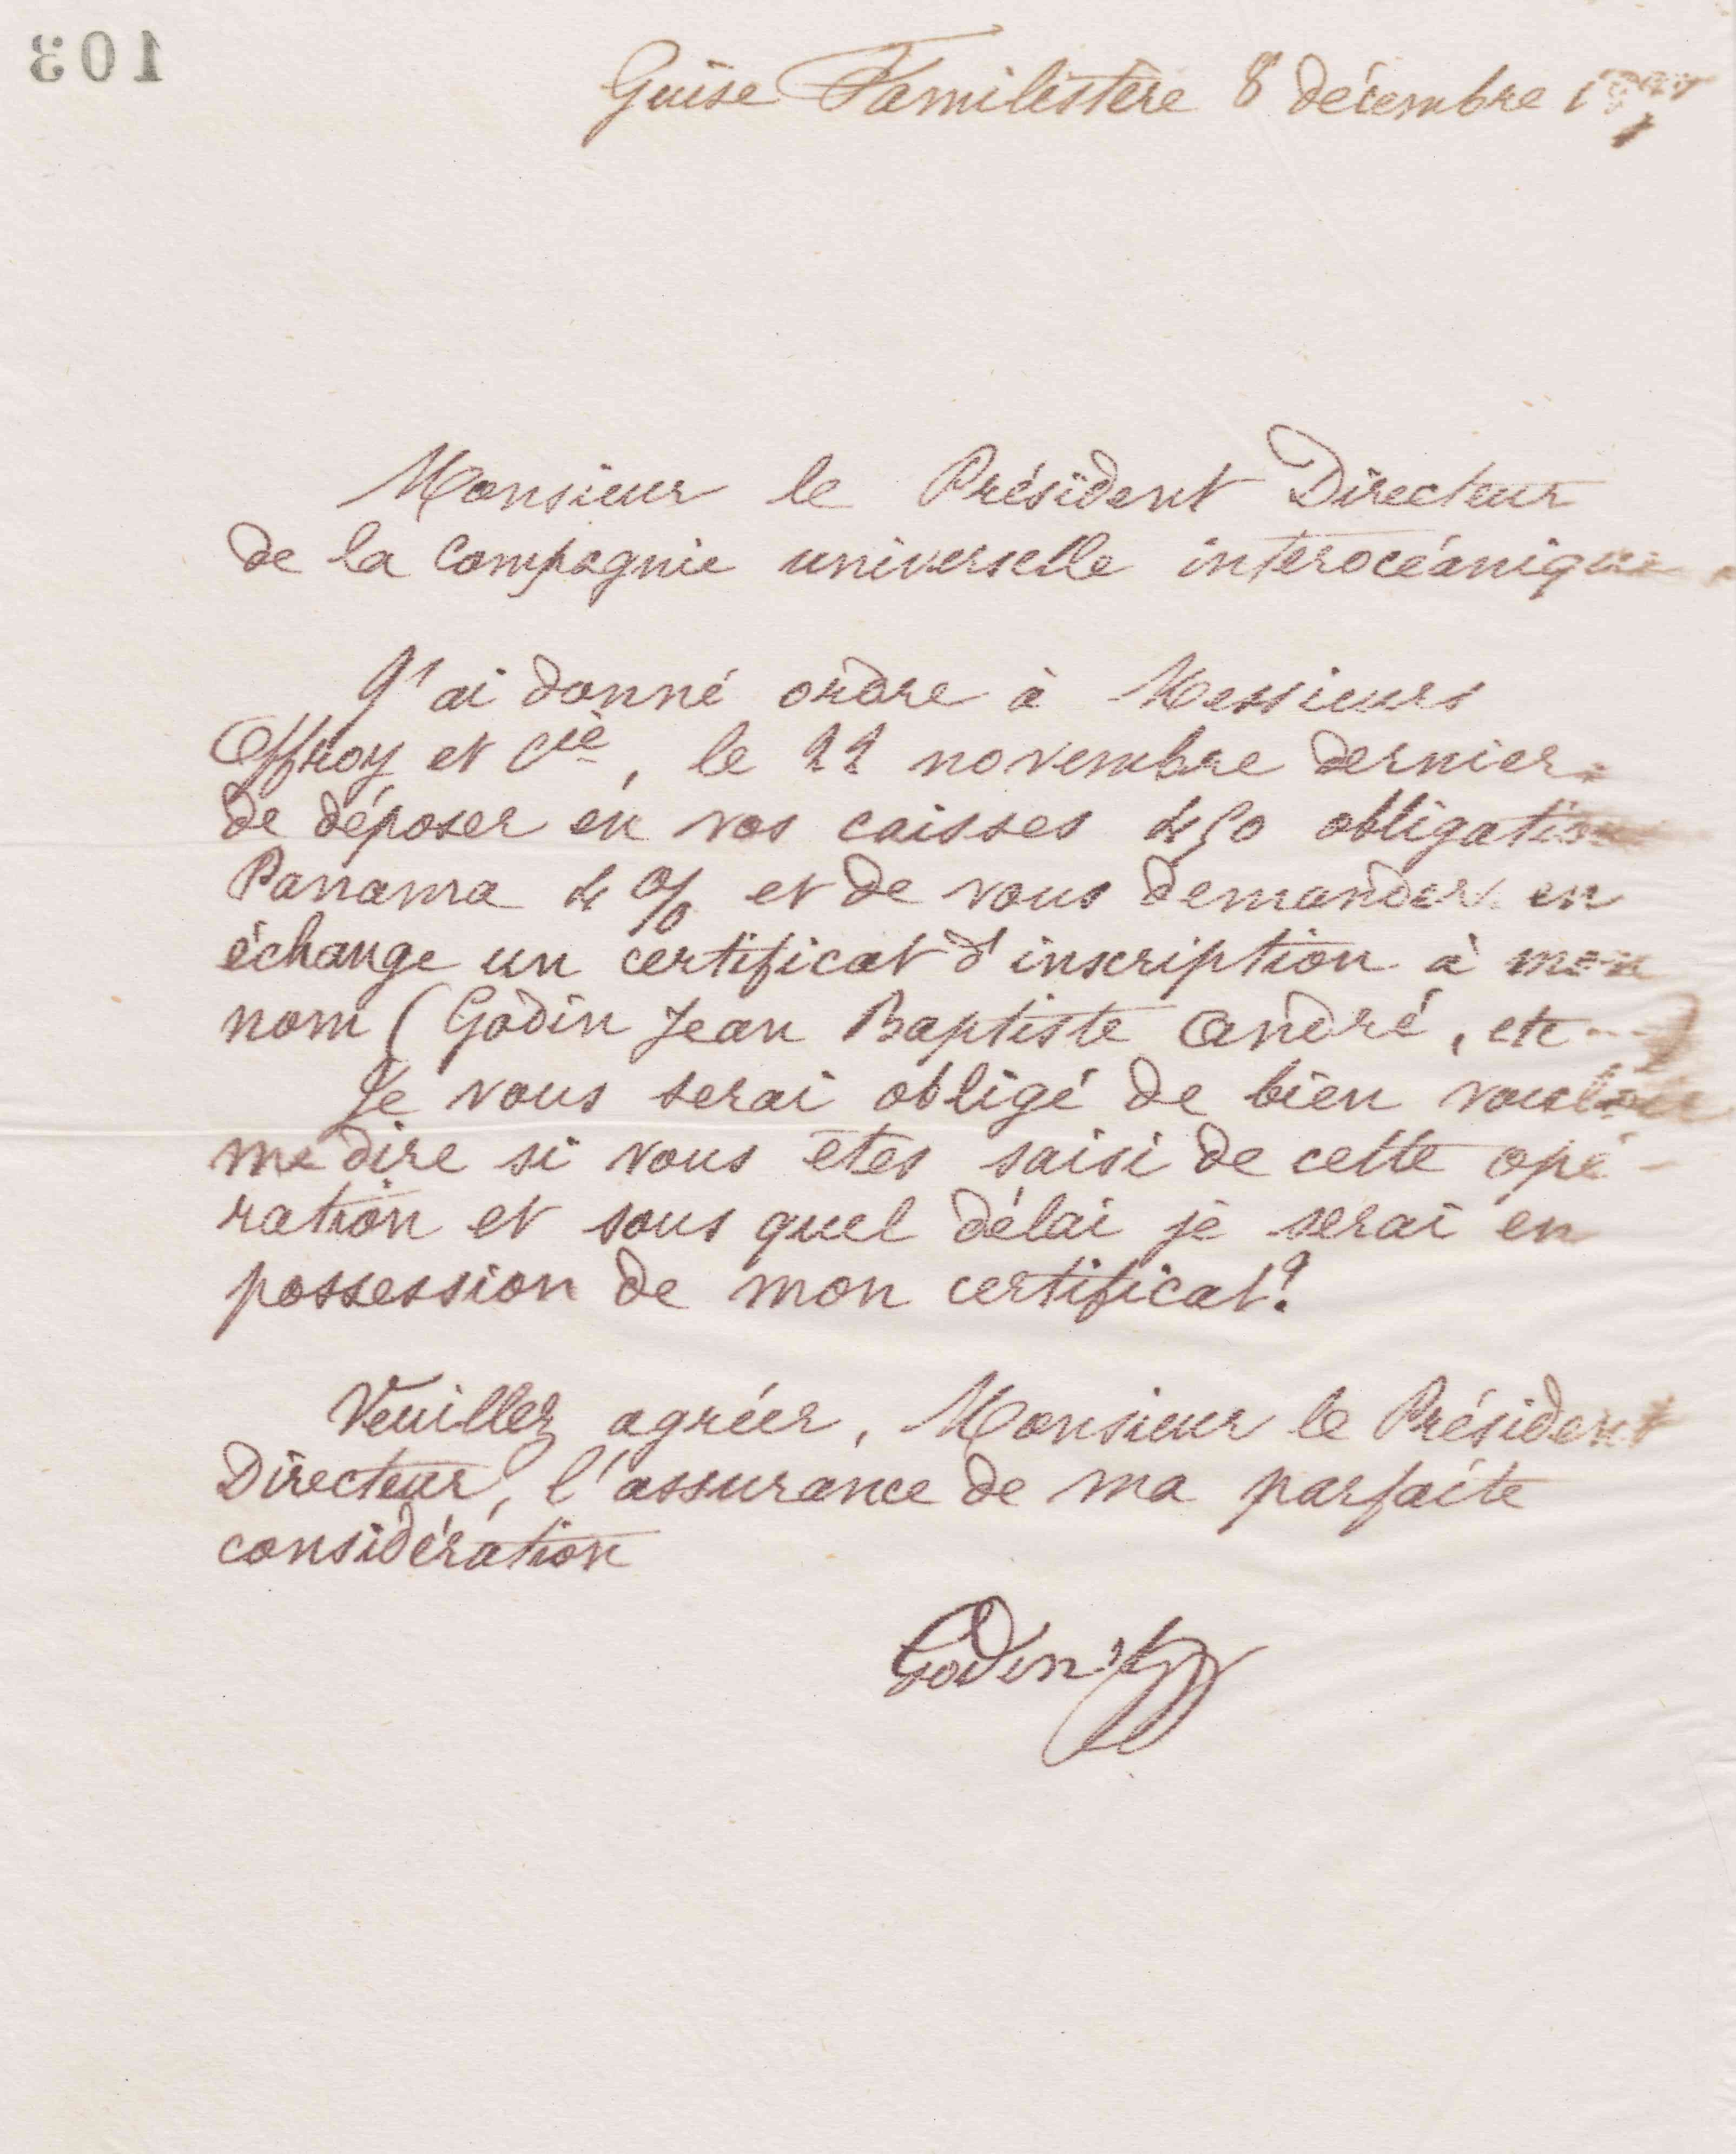 103
Guise Familistère 8 décembre
Monsieur le Président Directeur
de la Compagnie universelle interocéanique
J'ai donné ordre à Messieurs
Offroy et Cie, le 22 novembre dernier
de déposer en vos caisses 450 obligations
Panama 4 % et de vous demander en
échange un certificat d'inscription à mon
nom (Godin Jean Baptiste André, etc...)
Je vous serai obligé de bien vouloir
me dire si vous êtes saisi de cette opé-
ration et sous quel délai je serai en
possession de mon certificat?
Veuillez agréer, Monsieur le Président
Directeur, l'assurance de ma parfaite
considération
Godin